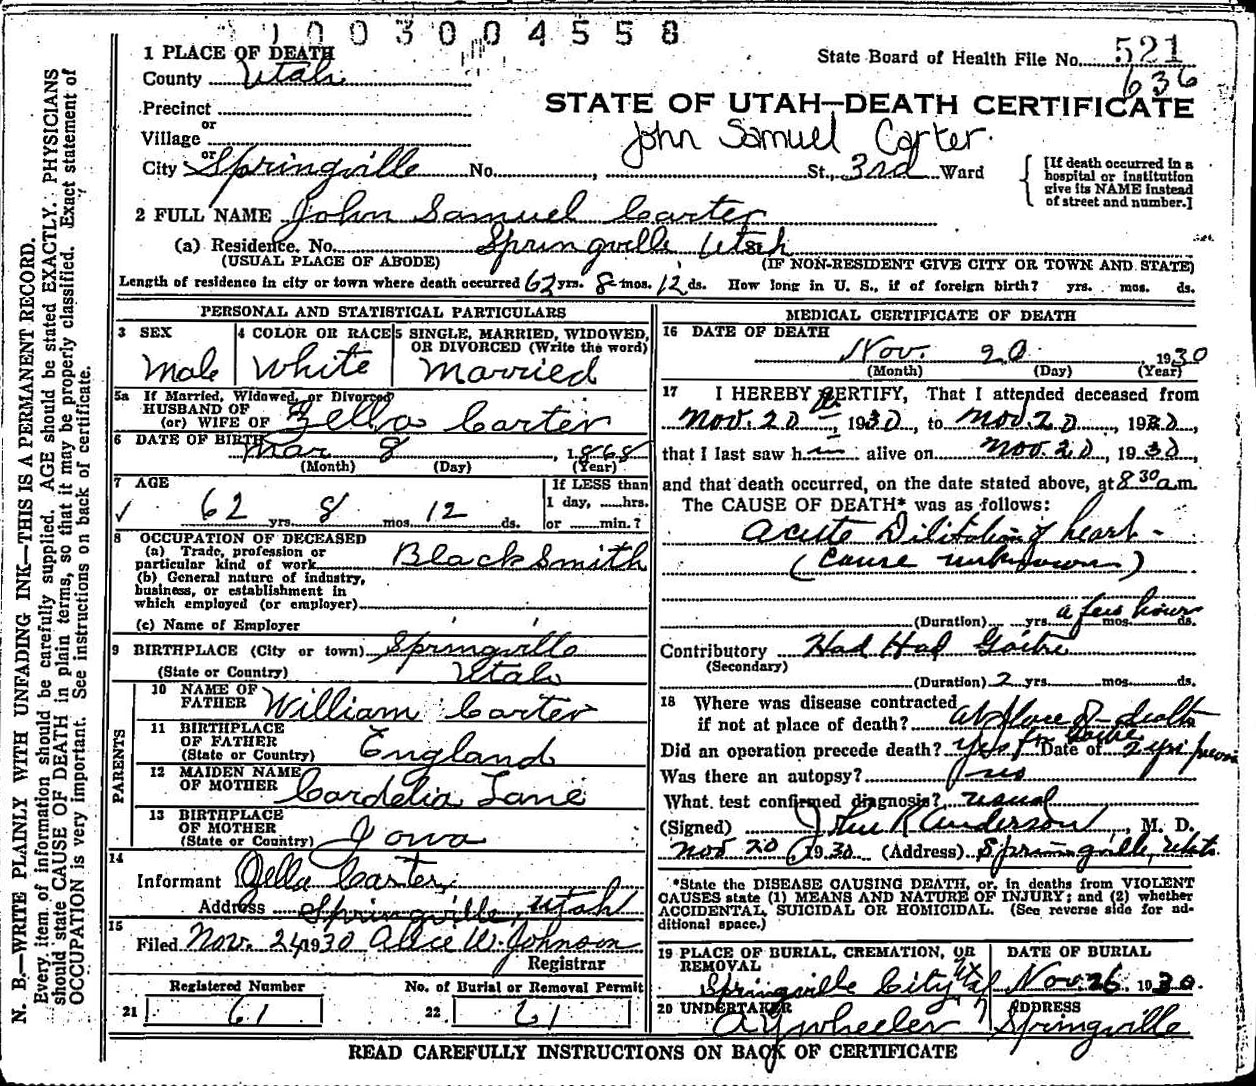 1003004558
1 PLACE OF DEATH
County Utah
State Board of Health File No. 521
636
Precinct
STATE OF UTAH—DEATH CERTIFICATE
or
Village
John Samuel Carter
or
City Springville No. , St., 3rd Ward
[If death occurred in a hospital or institution give its NAME instead of street and number.]
2 FULL NAME John Samuel Carter
(a) Residence. No. Springville Utah
(USUAL PLACE OF ABODE) (IF NON-RESIDENT GIVE CITY OR TOWN AND STATE)
Length of residence in city or town where death occurred 62 yrs. 8 mos. 12 ds. How long in U. S., if of foreign birth? yrs. mos. ds.
PERSONAL AND STATISTICAL PARTICULARS
3 SEX
Male
4 COLOR OR RACE
White
5 SINGLE, MARRIED, WIDOWED, OR DIVORCED (Write the word)
Married
5a If Married, Widowed, or Divorced
HUSBAND OF
(or) WIFE OF Zella Carter
6 DATE OF BIRTH
Mar 8, 1868
(Month) (Day) (Year)
7 AGE
62 yrs. 8 mos. 12 ds.
If LESS than
1 day, hrs.
or min.?
8 OCCUPATION OF DECEASED
(a) Trade, profession or
particular kind of work Blacksmith
(b) General nature of industry,
business, or establishment in
which employed (or employer)
(c) Name of Employer
9 BIRTHPLACE (City or town) Springville
(State or Country) Utah
PARENTS
10 NAME OF
FATHER William Carter
11 BIRTHPLACE
OF FATHER
(State or Country) England
12 MAIDEN NAME
OF MOTHER Cardelia Lane
13 BIRTHPLACE
OF MOTHER
(State or Country) Iowa
14
Informant Zella Carter,
Address Springville, Utah
15
Filed Nov. 24, 1930 Alice W. Johnson
Registrar
Registered Number
21 61
No. of Burial or Removal Permit
22 61
MEDICAL CERTIFICATE OF DEATH
16 DATE OF DEATH
Nov. 20. 1930
(Month) (Day) (Year)
17 I HEREBY CERTIFY, That I attended deceased from
Nov. 20, 1930, to Nov. 20, 1930,
that I last saw him alive on Nov. 20, 1930,
and that death occurred, on the date stated above, at 8 30 a.m.
The CAUSE OF DEATH* was as follows:
Acute Dilitation of heart -
(Cause unknown)
a few hours
(Duration) yrs. mos. ds.
Contributory Had Had Goitre
(Secondary)
(Duration) 2 yrs. mos. ds.
18 Where was disease contracted
if not at place of death? at place of death
Did an operation precede death? yes for Goitre Date of 2 yrs
Was there an autopsy? no
What test confirmed diagnosis? usual
(Signed) John R Anderson, M. D.
Nov 20 1930 (Address) Springville, Utah.
*State the DISEASE CAUSING DEATH, or, in deaths from VIOLENT
CAUSES state (1) MEANS AND NATURE OF INJURY; and (2) whether
ACCIDENTAL, SUICIDAL OR HOMICIDAL. (See reverse side for ad-
ditional space.)
19 PLACE OF BURIAL, CREMATION, OR
REMOVAL
Springville City
DATE OF BURIAL
Nov. 26, 1930.
20 UNDERTAKER
A Y Wheeler
ADDRESS
Springville
READ CAREFULLY INSTRUCTIONS ON BACK OF CERTIFICATE
N. B.—WRITE PLAINLY WITH UNFADING INK—THIS IS A PERMANENT RECORD.
Every item of information should be carefully supplied. AGE should be stated EXACTLY. PHYSICIANS
should state CAUSE OF DEATH in plain terms, so that it may be properly classified. Exact statement of
OCCUPATION is very important. See instructions on back of certificate.